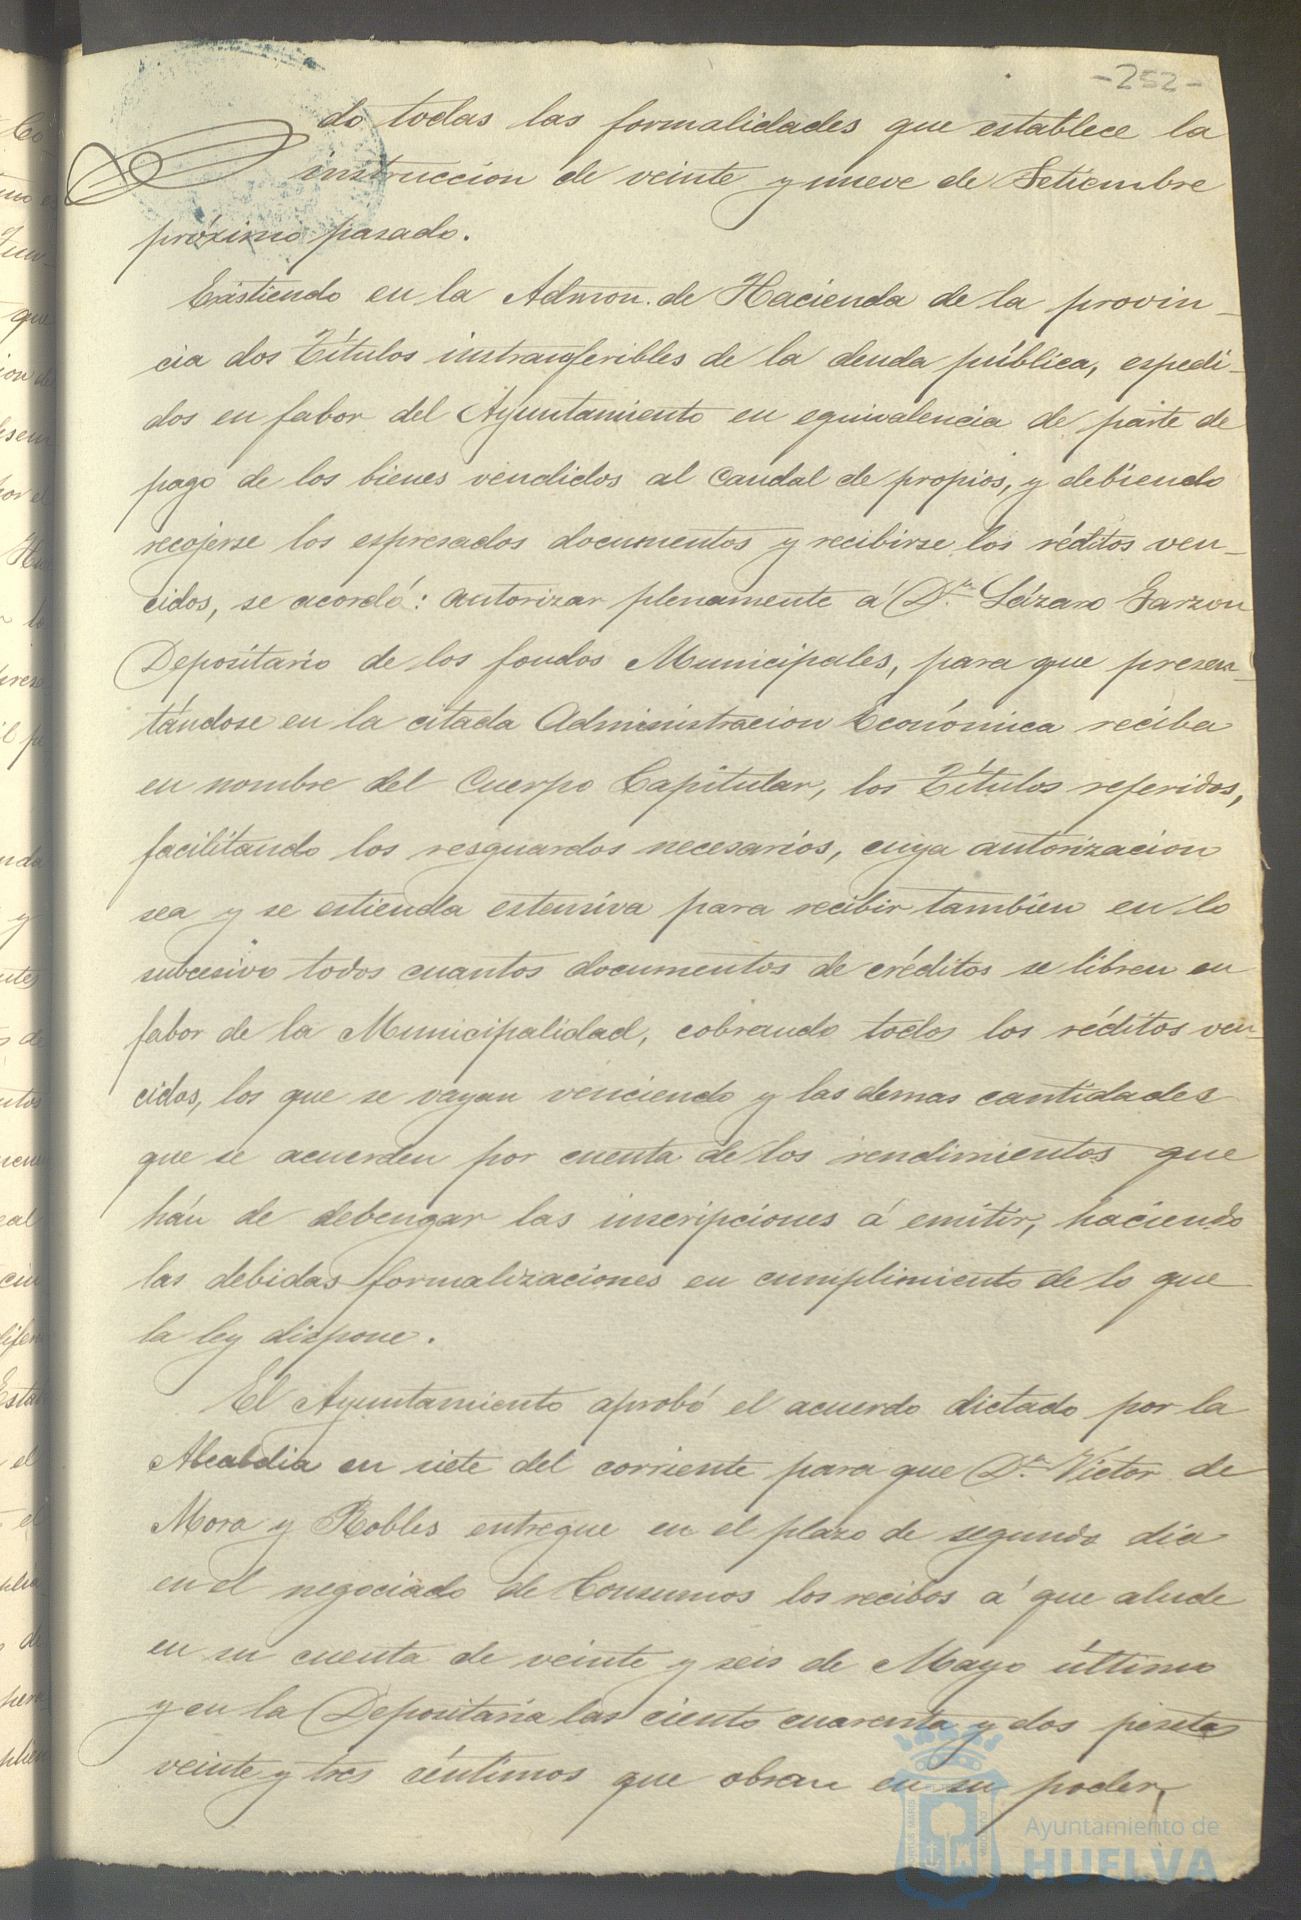 -252-
do todas las formalidades que establece la
instruccion de veinte y nueve de Setiembre
próximo pasado.
Existiendo en la Admon. de Hacienda de la provin-
cia dos Títulos instranferibles de la deuda pública, espedi-
dos en fabor del Ayuntamiento en equivalencia de parte de
pago de los bienes vendidos al caudal de propios, y debiendo
recojerse los espresados documentos y recibirse los réditos ven-
cidos, se acordó: autorizar plenamente á D.n Lázaro Garzon
Depositario de los fondos Municipales, para que presen-
tándose en la citada Administracion Económica reciba
en nombre del Cuerpo Capitular, los Títulos referidos,
facilitando los resguardos necesarios, cuya autorizacion
sea y se estienda estensiva para recibir tambien en lo
subcesivo todos cuantos documentos de créditos se libren en
fabor de la Municipalidad, cobrando todos los réditos ven-
cidos, los que se vayan venciendo y las demas cantidades
que se acuerden por cuenta de los rendimientos que
hán de debengar las inscripciones á emitir, haciendo
las debidas formalizaciones en cumplimiento de lo que
la ley dispone.
El Ayuntamiento aprobó el acuerdo dictado por la
Alcaldia en siete del corriente para que D.n Victor de
Mora y Robles entregue en el plazo de segundo dia
en el negociado de Consumos los recibos á que alude
en su cuenta de veinte y seis de Mayo último
y en la Depositaria las ciento cuarenta y dos pesetas
veinte y tres céntimos que obran en su poder,
Ayuntamiento de
HUELVA